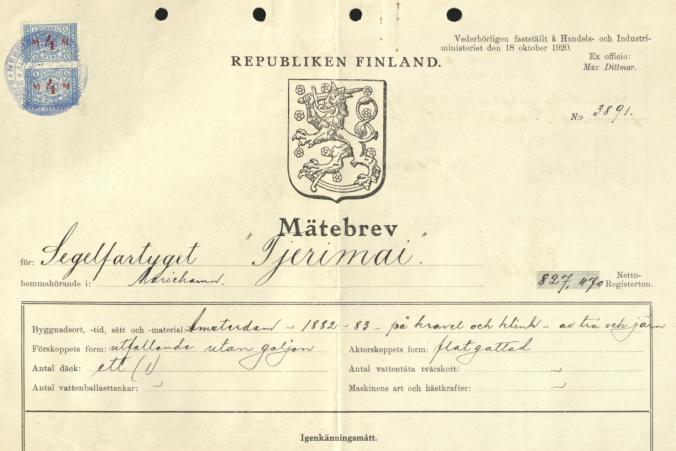 Vederbörligen fastställt å Handels- och Industri-
ministeriet den 18 oktober 1920.
Ex officio:
Max Dittmar.
M 4 M
M 4 M
REPUBLIKEN FINLAND.
N:o 3891.
Mätebrev
för: Segelfartyget "Tjerimai".
hemmahörande i: Mariehamn.
827,470 Netto-Registerton.
Byggnadsort, -tid, sätt och -material: Amsterdam - 1882 - 83 - på kravel och klink - av trä och järn
Förskeppets form: utfallande utan galjon
Akterskeppets form: flatgattad
Antal däck: ett (1)
Antal vattentäta tvärskott:
Antal vattenballasttankar:
Maskinens art och hästkrafter:
Igenkänningsmått.